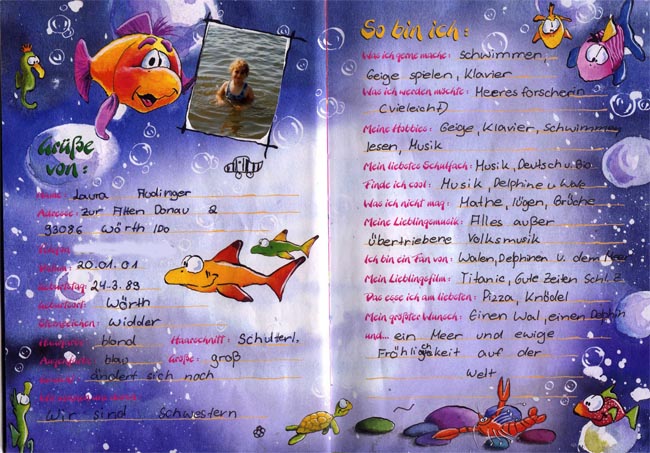 Grüße
von:
Name: Laura Audinger
Adresse: Zur Alten Donau 2
93086 Wörth /DO
Datum: 20.01.01
Geburtstag: 24.3.89
Geburtsort: Wörth
Sternzeichen: Widder
Haarfarbe: blond Haarschnitt: Schulterl.
Augenfarbe: blau Größe: groß
ändert sich noch
Wir sind Schwestern
So bin ich:
Was ich gerne mache: schwimmen,
Geige spielen, Klavier
Was ich werden möchte: Meeresforscherin
(vieleicht)
Meine Hobbies: Geige, Klavier, Schwimmen
lesen, Musik
Mein liebstes Schulfach: Musik, Deutsch u. Bio.
Finde ich cool: Musik, Delphine u. Wale
Was ich nicht mag: Mathe, lügen, Brüche
Meine Lieblingsmusik: Alles außer
übertriebene Volksmusik
Ich bin ein Fan von: Walen, Delphinen u. dem Meer
Mein Lieblingsfilm: Titanic, Gute Zeiten Schl. Z.
Das esse ich am liebsten: Pizza, Knödel
Mein größter Wunsch: Einen Wal, einen Delphin
und... ein Meer und ewige
Fröhlichkeit auf der
Welt